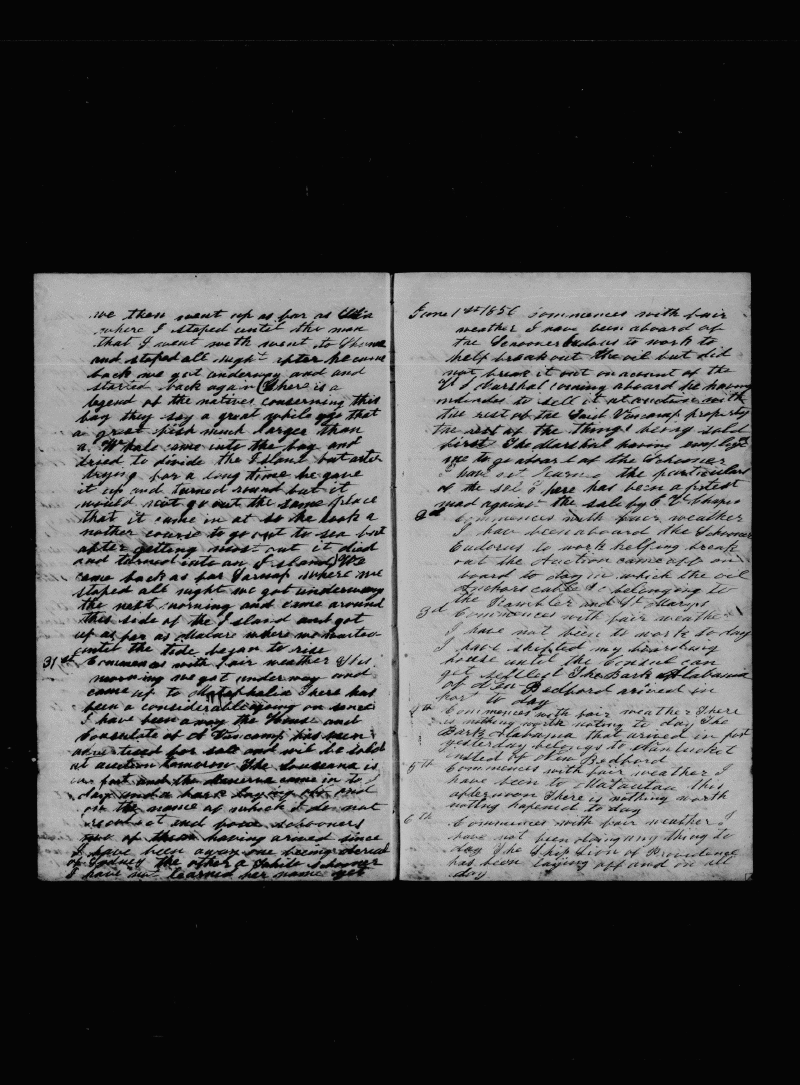 we then went up as far as
where I stoped until the man
that I went with went to
and stoped all night after he came
back we got underway and and
started back again (There is a
legend of the natives concerning this
bay they say a great while ago that
a great fish much larger than
a Whale came into the bay and
tried to divide the Island but after
trying for a long time he gave
it up and turned round but it
would not go out the same place
that it came in at so he took a
nother course to go out to sea but
after getting most out it died
and turned into an Island) We
came back as far where we
stoped all night we got underway
the next morning and came around
this side of the Island and got
up as far as where we waited
until the tide began to rise
31st Commences with Fair weather This
morning we got underway and
came up to There has
been a considerable going on since
I have been away the House and
Consulate of A Vancamp has been
advertised for sale and will be sold
at auction tomorrow The Louisana is
in port and the came in to
day and a bark off and
on the name of which I do not
recolect and four schooners
two of them having arived since
I have been away one being
of Sydney the other a White Schooner
I have not learned her name yet
June 1st 1856 Commences with fair
weather I have been aboard of
the Schooner Eudorus to work to
help break out the oil but did
not break it out on account of the
U S Marshal coming aboard he having
orders to sell it at auction with
the rest of the Said Vancamp property
the rest of the things being sold
first The Marshal having
me to go aboard of the Schooner
I have not learned the particulars
of the sale I here has been a protest
mad against the sale by C
2nd Commences with fair weather
I have been aboard the Schooner
Eudorus to work helping break
out the Auction came off on
board to day in which the oil
Anchors cables &c belonging to
the Rambler and St Marys
3d Commences with fair weather
I have not been to work to day
I have shifted my boarding
house until the Consul can
get settled The Bark Alabama
of New Bedford arived in
port to day
4th Commences with fair weather There
is nothing worth noting to day The
Bark Alabama that arived in port
yesterday belongs to Nantucket
insted of New Bedford
5th Commences with fair weather I
have been to Matautau this
afternoon There is nothing worth
noting hapened to day
6th Commences with fair weather I
have not been doing any thing to
day The Ship Lion of Providence
has been laying off and on all
day